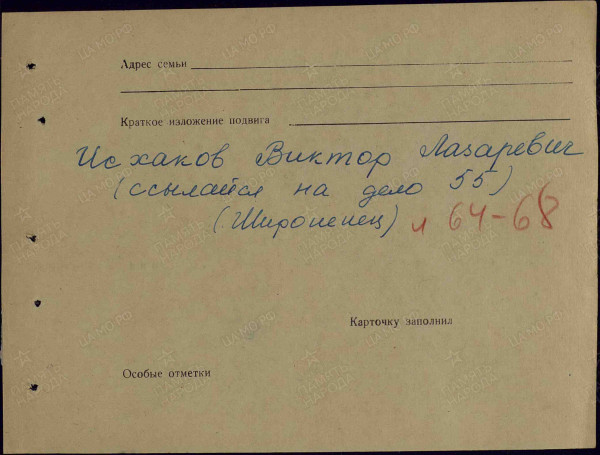 Адрес семьи
Краткое изложение подвига
Исхаков Виктор Лазаревич
(ссылайся на дело 55)
(Широненец) л 64-68
Карточку заполнил
Особые отметки